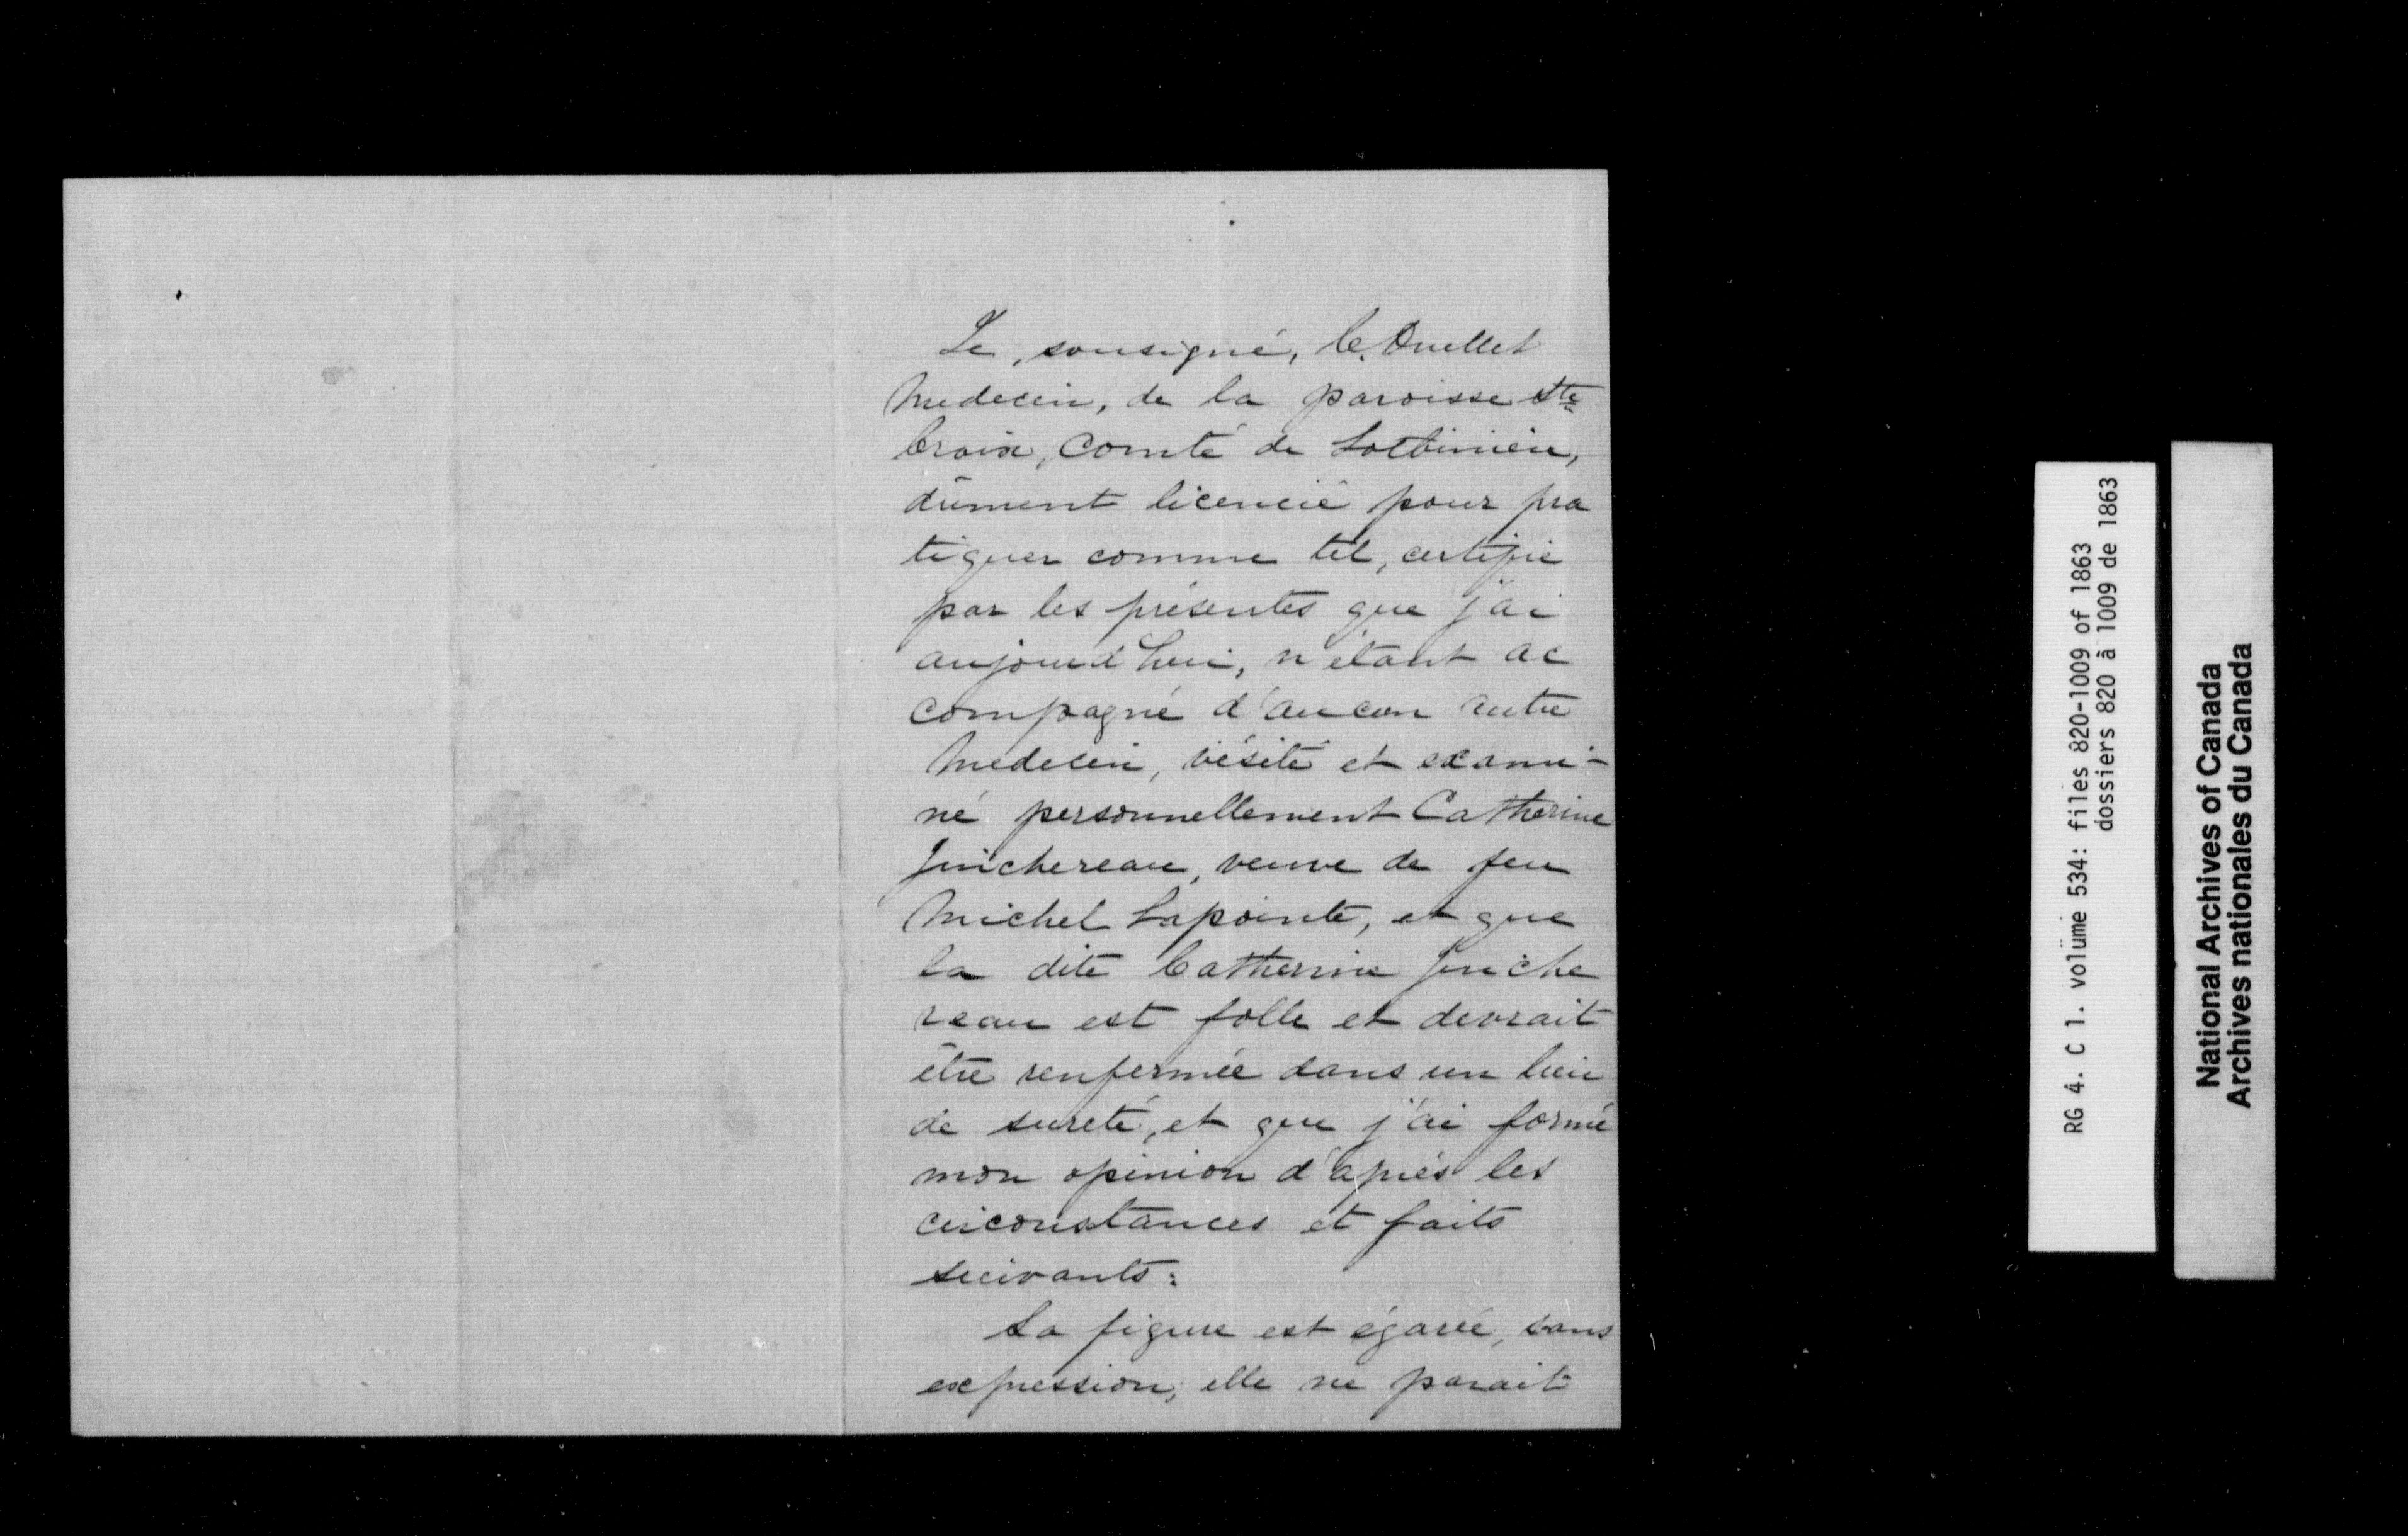 Le, sousigné, C. Ouellet
Medecin, de la paroisse Ste
Croix, Comté de Lotbinière,
dûment licencié pour pra
tiquer comme tel, certifie
par les présentes que j'ai
aujourd'hui, n'étant ac
compagné d'aucun autre
Médecin, visité et exami-
né personnellement Catherine
Juichereau, veuve de feu
Michel Lapointe, et que
la dite Catherine Juiche
reau est folle et devrait
être renfermée dans un lieu
de sureté, et que j'ai formé
mon opinion d'après les
circonstances et faits
suivants:
Sa figure est égarée, sans
expression, elle ne parait
RG 4. C 1. volume 534: files 820-1009 of 1863
dossiers 820 à 1009 de 1863
National Archives of Canada
Archives nationales du Canada